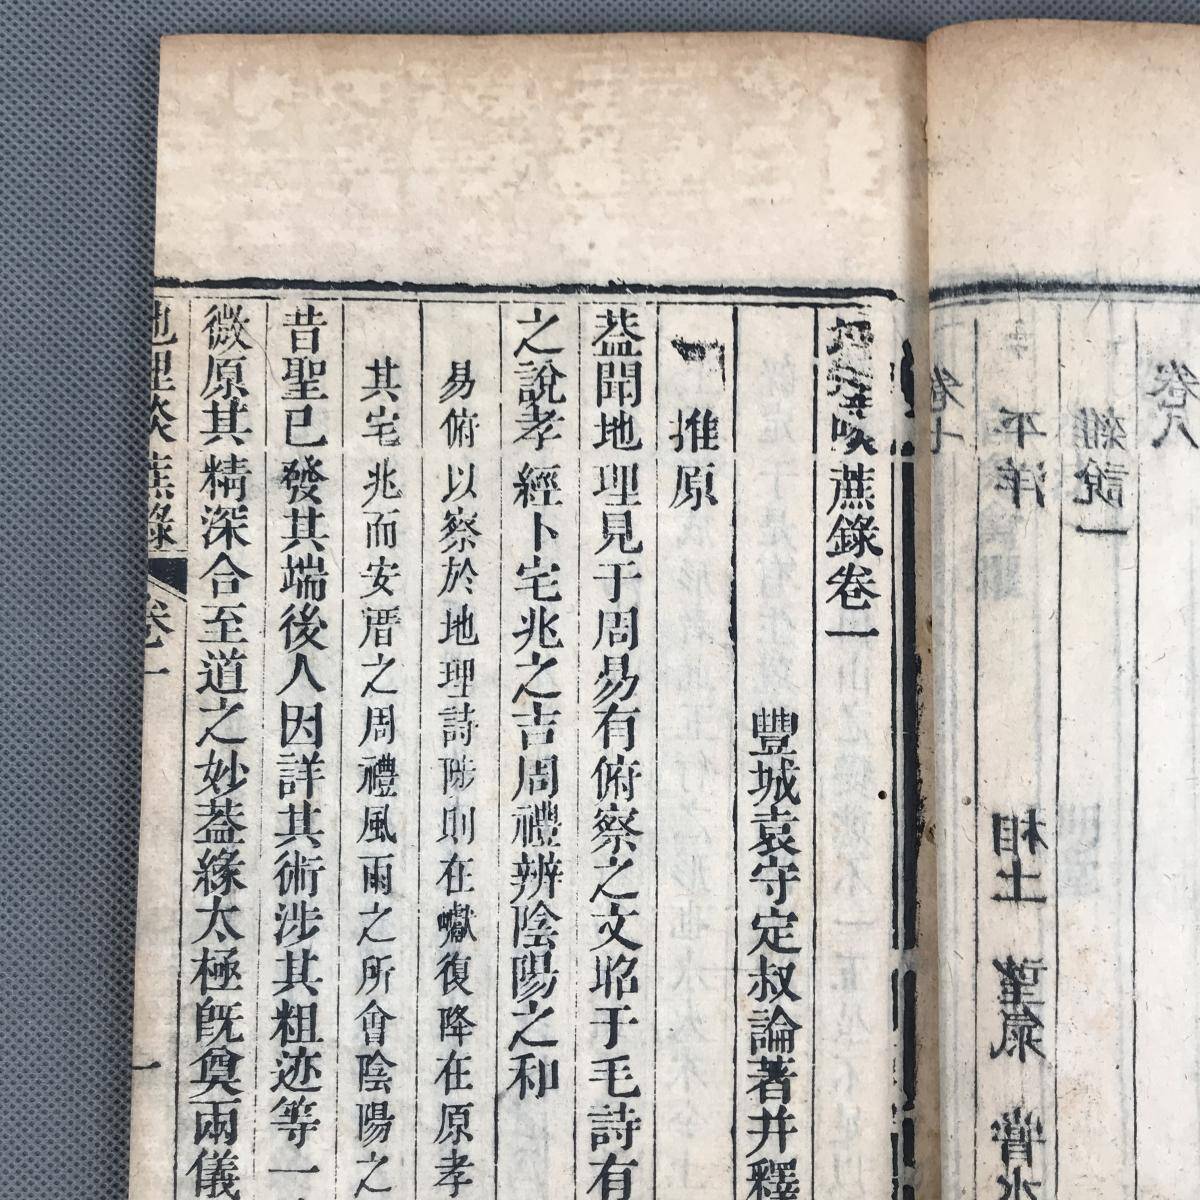 地理啖蔗錄卷一
豐城袁守定叔論著并釋
推原
葢聞地理見于周易有俯察之文昭于毛詩有
之說孝經卜宅兆之吉周禮辨陰陽之和
易俯以察於地理詩陟則在巘復降在原孝
其宅兆而安厝之周禮風雨之所會陰陽之
昔聖已發其端後人因詳其術涉其粗迹等一
微原其精深合至道之妙葢緣太極旣奠兩儀
地理啖蔗錄 卷一 一